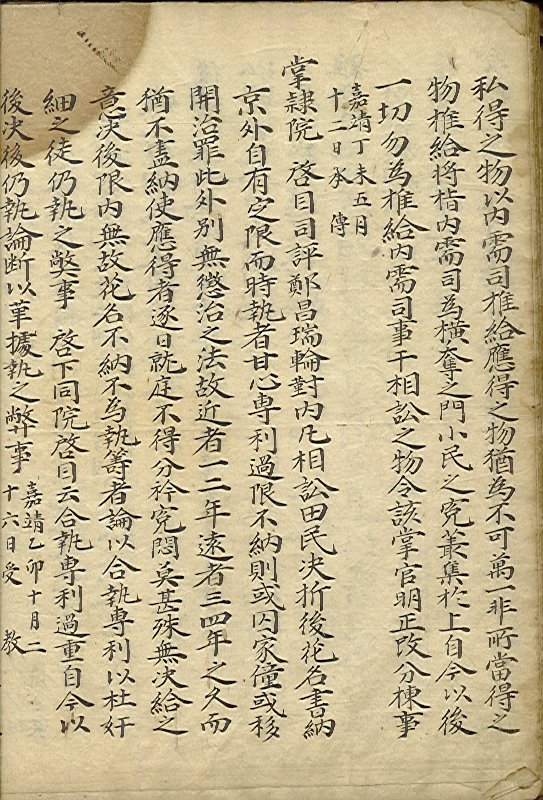 私得之物以內需司推給應得之物猶爲不可萬一非所當得之
物推給將指內需司爲橫奪之門小民之寃叢集於上自今以後
一切勿爲推給內需司事干相訟之物令該掌官明正改分棟事
嘉靖丁未五月
十二日承 傳
掌隷院 啓目司評鄭昌瑞輪對內凡相訟田民决折後花名書納
京外自有定限而時執者甘心專利過限不納則或囚家僮或移
開治罪此外別無懲治之法故近者一二年遠者三四年之久而
猶不盡納使應得者逐日就庭不得分衿寃悶莫甚殊無决給之
意决後限內無故花名不納不爲執籌者論以合執專利以杜奸
細之徒仍執之弊事 啓下同院啓目云合執專利過重自今以
後决後仍執論斷以革據執之弊事
嘉靖乙卯十月二
十六日受 敎